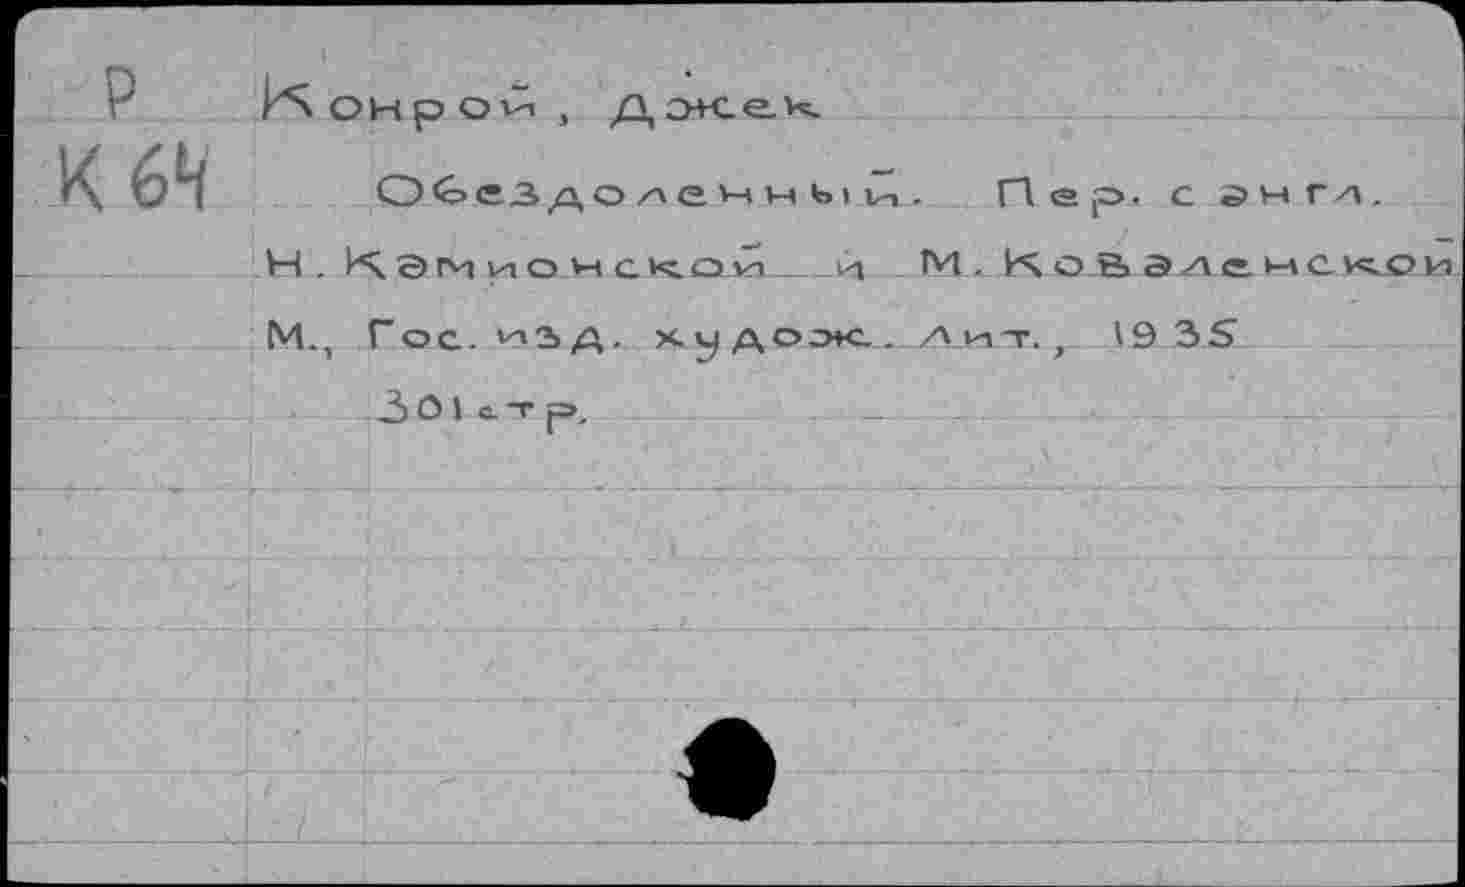 Р Конрой, Джек
К 64 Обездоленный. Пер. с англ.
Н. Камионской и М. Коваленской
М., Гос. изд. худож. лит., 1935
301 стр.